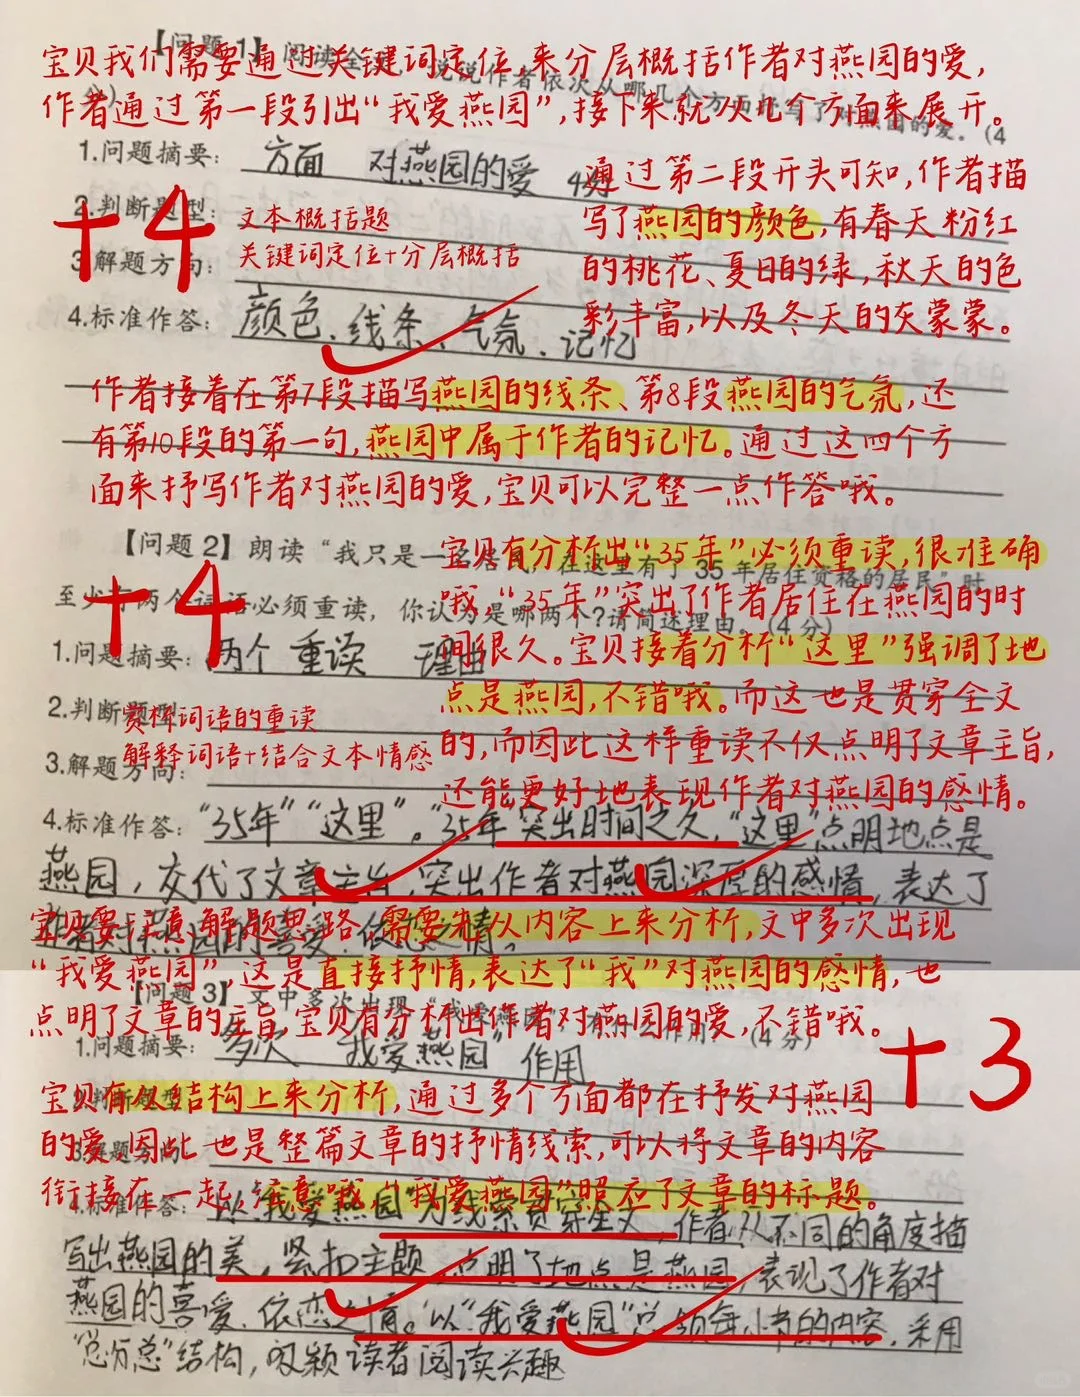 【问题 1】阅读全文，说说作者依次从哪几个方面抒写了对燕园的爱。(4分)
宝贝我们需要通过关键词定位,来分层概括作者对燕园的爱,
作者通过第一段引出“我爱燕园”,接下来就从几个方面来展开。
1.问题摘要: 方面 对燕园的爱 4分
通过第二段开头可知,作者描
写了燕园的颜色,有春天粉红
的桃花、夏日的绿,秋天的色
彩丰富,以及冬天的灰蒙蒙。
+4
2.判断题型: 文本概括题
3.解题方向: 关键词定位+分层概括
4.标准作答: 颜色、线条、气氛、记忆
作者接着在第7段描写燕园的线条、第8段燕园的气氛,还
有第10段的第一句,燕园中属于作者的记忆。通过这四个方
面来抒写作者对燕园的爱,宝贝可以完整一点作答哦。
【问题 2】朗读“我只是一名居民，在这里有了 35 年居住资格的居民”时，
至少有两个词语必须重读，你认为是哪两个?请简述理由。(4 分)
宝贝有分析出“35年”必须重读,很准确
哦,“35年”突出了作者居住在燕园的时
间很久。宝贝接着分析“这里”强调了地
点是燕园,不错哦。而这也是贯穿全文
的,而因此这样重读不仅点明了文章主旨,
还能更好地表现作者对燕园的感情。
+4
1.问题摘要: 两个 重读 理由
2.判断题型: 赏析词语的重读
3.解题方向: 解释词语+结合文本情感
4.标准作答: “35年”“这里”。“35年”突出时间之久,“这里”点明地点是
燕园,交代了文章主旨,突出作者对燕园深厚的感情,表达了
作者对燕园的喜爱、依恋之情。
宝贝要注意解题思路,需要先从内容上来分析,文中多次出现
“我爱燕园”,这是直接抒情,表达了“我”对燕园的感情,也
点明了文章的主旨,宝贝有分析出作者对燕园的爱,不错哦。
【问题 3】文中多次出现“我爱燕园”，有什么作用? (4 分)
1.问题摘要: 多次 “我爱燕园” 作用
+3
2.判断题型:
3.解题方向:
宝贝有从结构上来分析,通过多个方面都在抒发对燕园
的爱,因此也是整篇文章的抒情线索,可以将文章的内容
衔接在一起,注意哦,“我爱燕园”照应了文章的标题。
4.标准作答: 以“我爱燕园”为线索贯穿全文,作者从不同的角度描
写出燕园的美,紧扣主题,点明了地点是燕园,表现了作者对
燕园的喜爱、依恋之情。以“我爱燕园”总领每小节的内容,采用
“总分总”结构,吸颖读者阅读兴趣